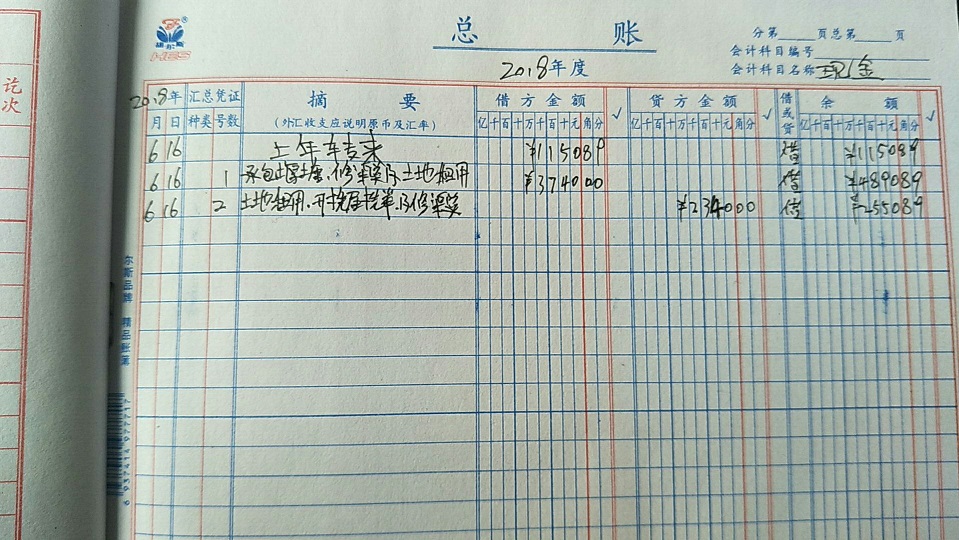 总 账
分第 页总第 页
会计科目编号
会计科目名称 现金
2018年度
2018年 汇总凭证 摘 要 借方金额 √ 贷方金额 √ 借或贷 余 额 √
月 日 种类 号数 (外汇收支应说明原币及汇率) 亿千百十万千百十元角分 亿千百十万千百十元角分 亿千百十万千百十元角分
6 16 上年 ¥115089 借 ¥115089
6 16 1 土地租用 ¥374000 借 ¥489089
6 16 2 土地租用 ¥234000 借 ¥255089
尔斯品牌 精品账簿
记
次